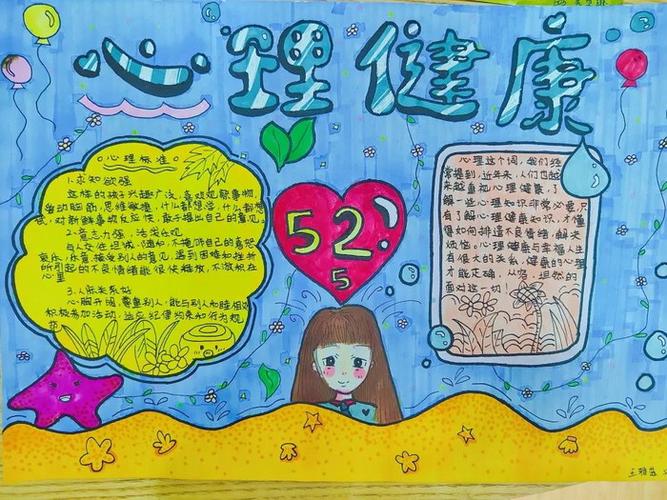 心理健康
心理标准
1.求知欲强
这样的孩子兴趣广泛,喜欢观察事物,
肯动脑筋,思维敏捷,什么都想学,什么都想
试,对新鲜事物反应快,敢于提出自己的意见。
2.意志力强,活泼乐观
与人交往坦诚、随和,不掩饰自己的喜怒
哀乐,乐意接受别人的意见,遇到困难和挫折
所引起的不良情绪能很快释放,不淤积在
心里
3.人际关系好
心胸开阔,尊重别人,能与别人和睦相处
积极参加活动,适应纪律约束和行为规
范
5 2
5
心理这个词,我们经
常提到,近年来,人们也越
来越重视心理健康,了
解一些心理知识非常必要,只
有了解心理健康知识,才懂
得如何排遣不良情绪,解决
烦恼。心理健康与幸福人生
有很大的关系,健康的心理
才能正确、从容、坦然的
面对这一切!
王雅